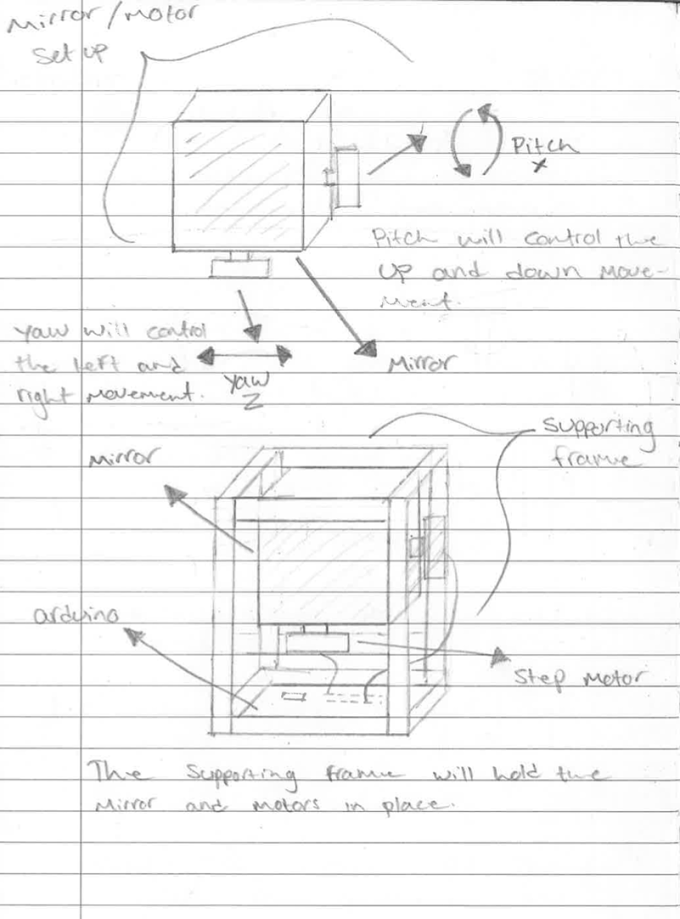 Mirror/motor
Set up
Pitch
x
Pitch will control the
up and down move-
ment.
Yaw will control
the left and
right movement.
Yaw
Z
Mirror
Supporting
frame
Mirror
arduino
Step Motor
The Supporting frame will hold the
Mirror and motors in place.